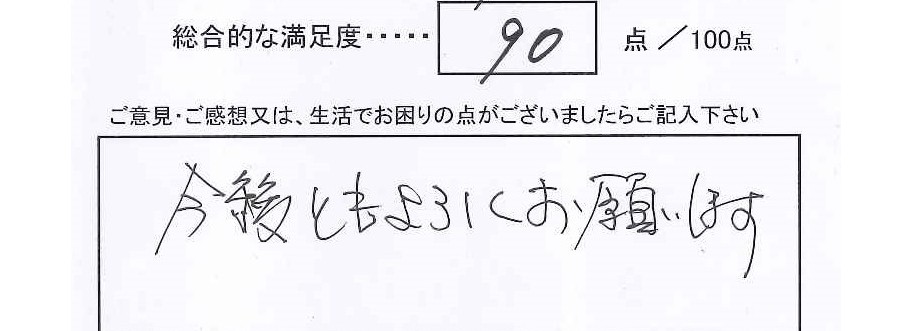 総合的な満足度‥‥‥ 90 点 ／100点
ご意見・ご感想又は、生活でお困りの点がございましたらご記入下さい
今後ともよろしくお願います